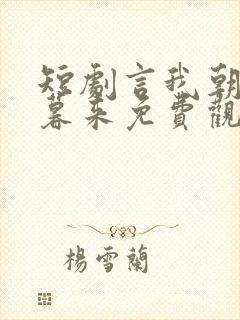 短劇言我朝
暮未免費觀
楊雪蘭